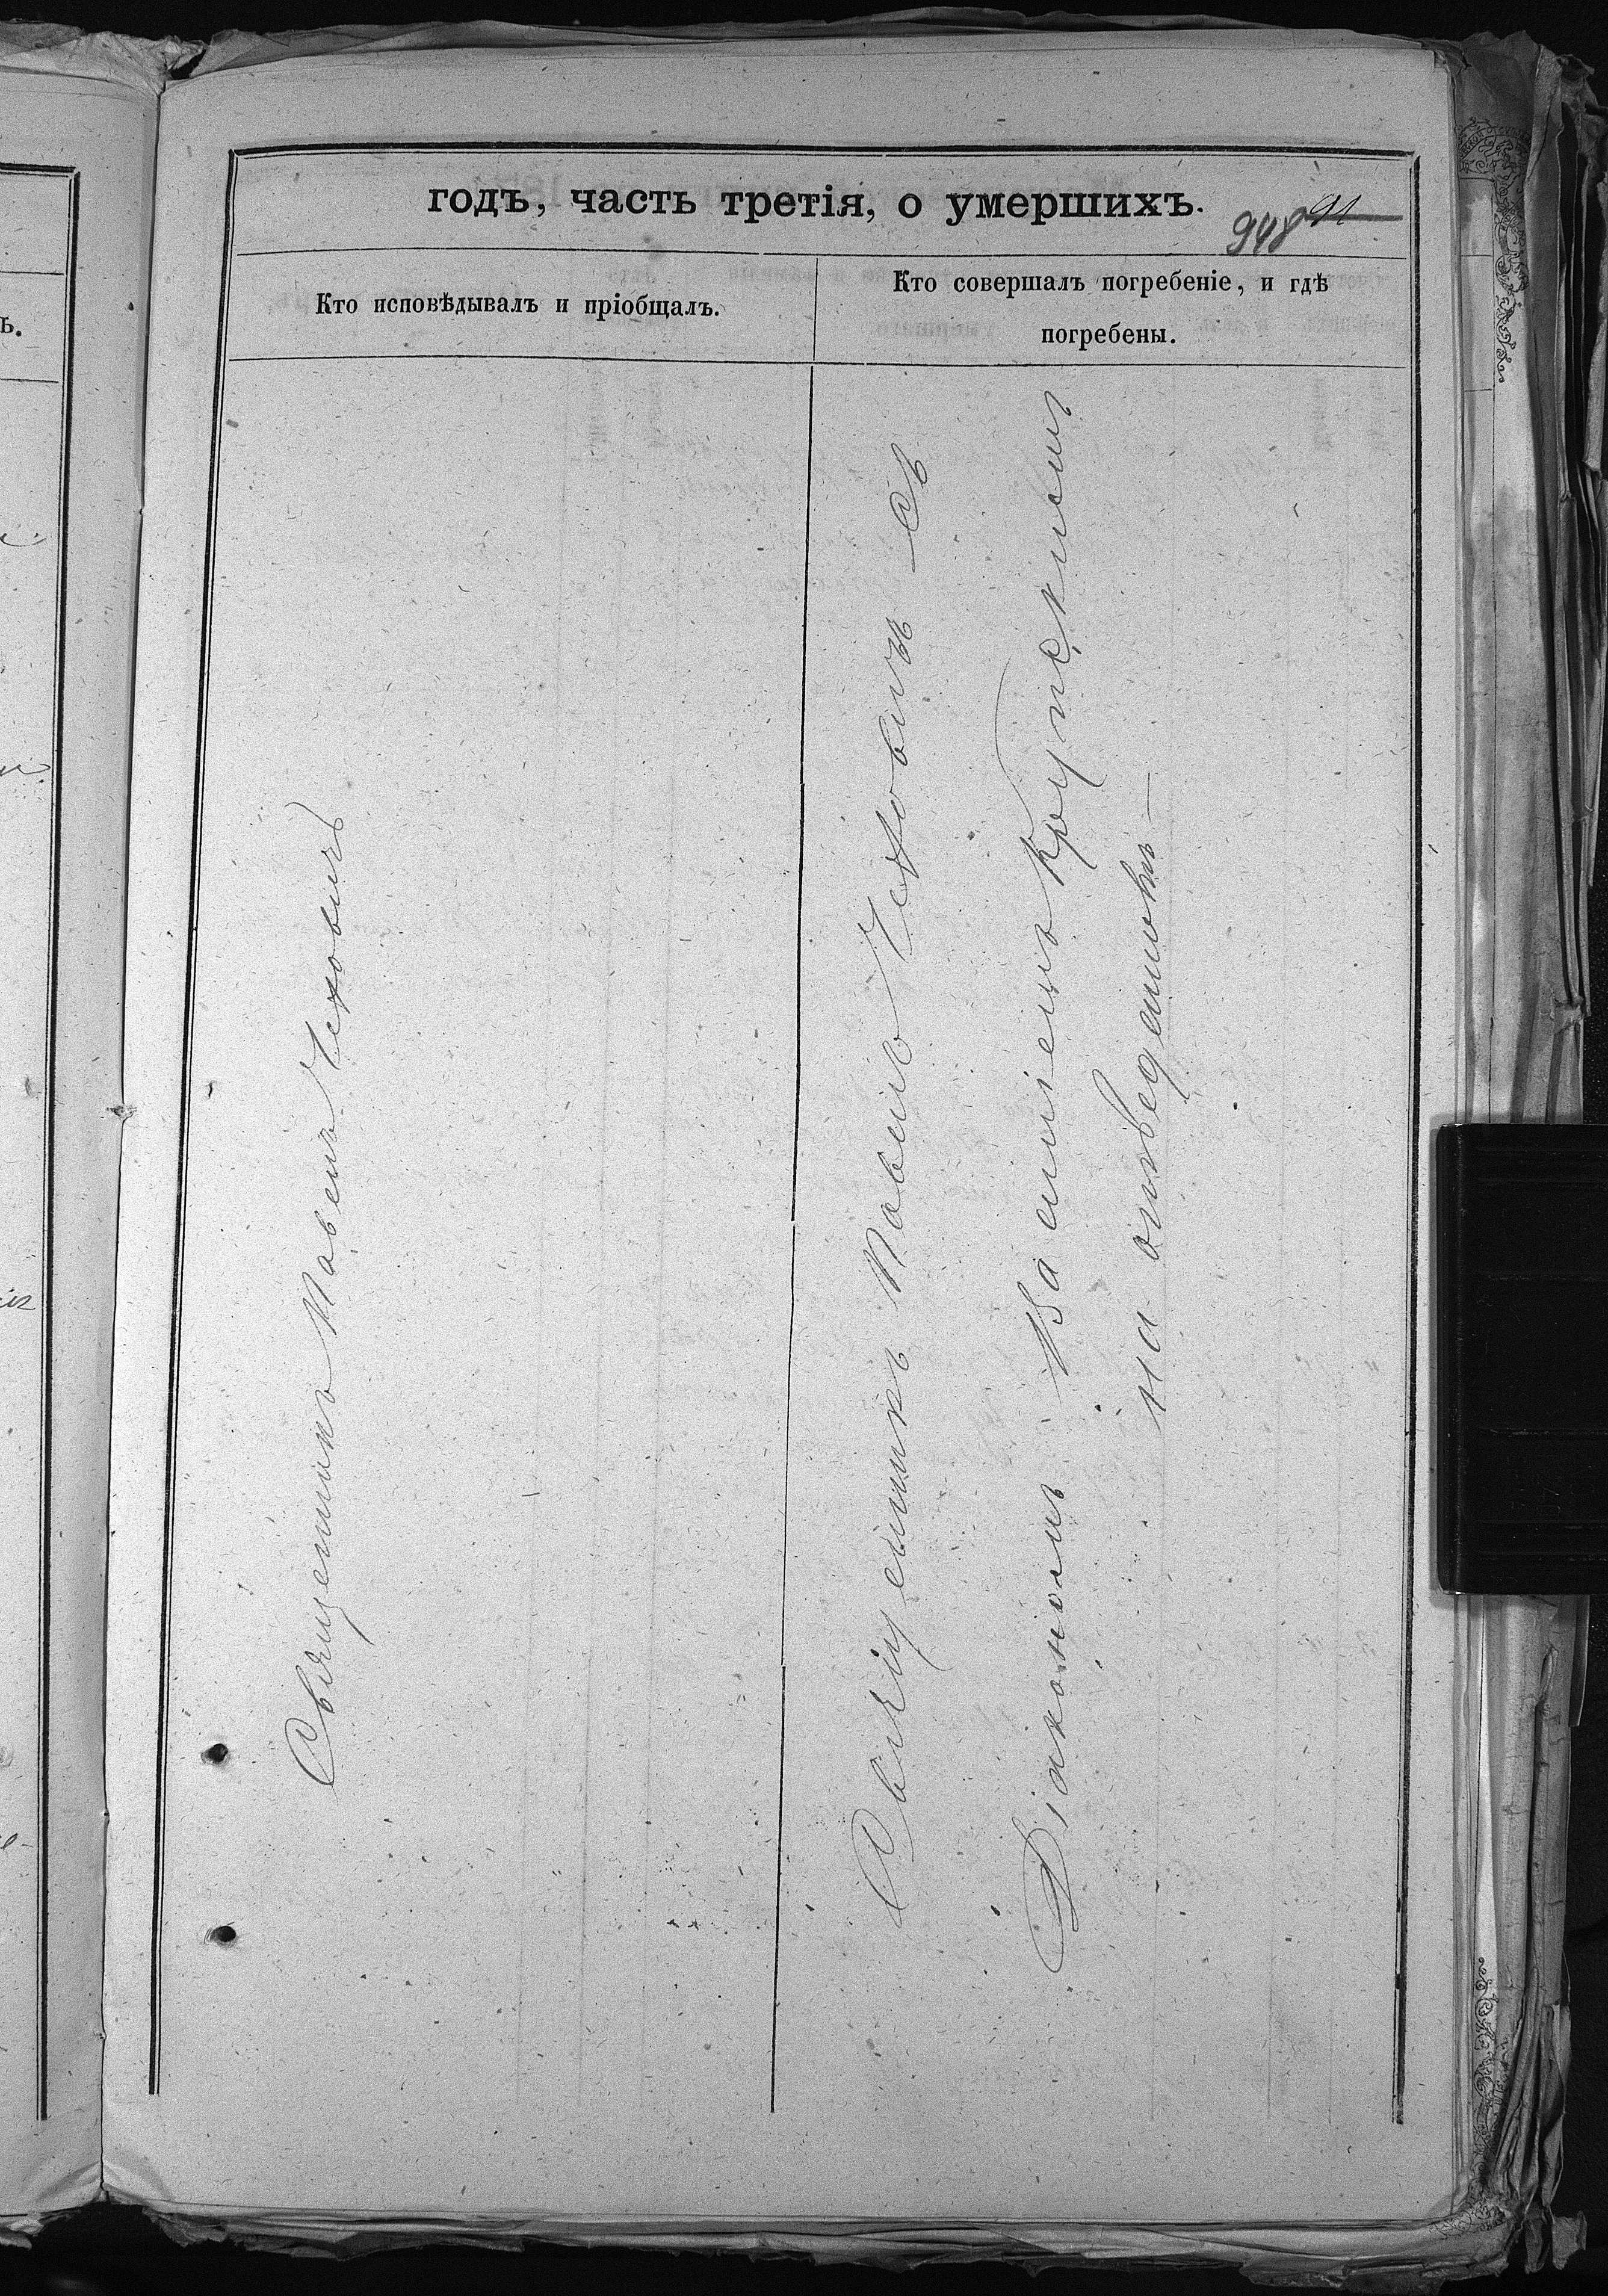 годъ, часть третія, о умершихъ.
948 91
Кто исповѣдывалъ и пріобщалъ.
Кто совершалъ погребеніе, и гдѣ
погребены.
Священникъ Павелъ Чеховичъ
Священникъ Павелъ Чеховичъ съ
Діакономъ Василіемъ Крупскимъ
на отведенномъ